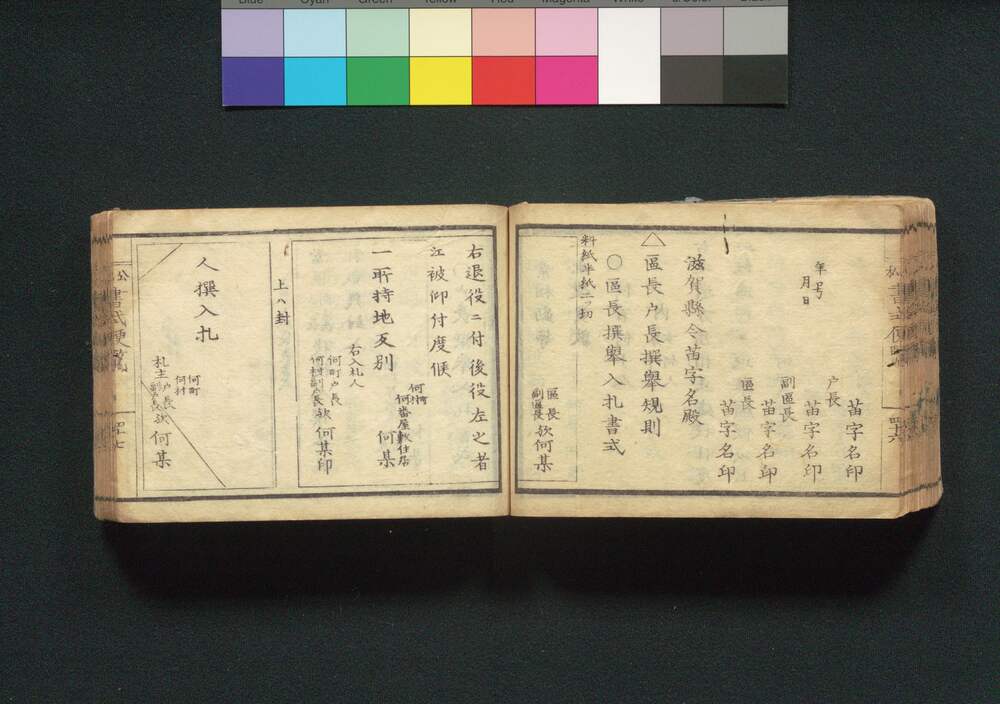 Blue Cyan Green Yellow Red Magenta White Black
苗字名印
年号
月日
戸長
苗字名印
副區長
苗字名印
區長
苗字名印
滋賀縣令苗字名殿
△區長戸長撰舉規則
○區長撰舉入札書式
料紙半紙二ッ切
區長
副區長
欤何某
右退役ニ付後役左之者
江被仰付度候
何町
何村
何番屋敷住居
何某
一所持地反別
右入札人
何町戸長
何村副戸長
欤何某印
上ハ封
人撰入札
何町
何村
札主
戸長
副戸長
欤何某
四十七